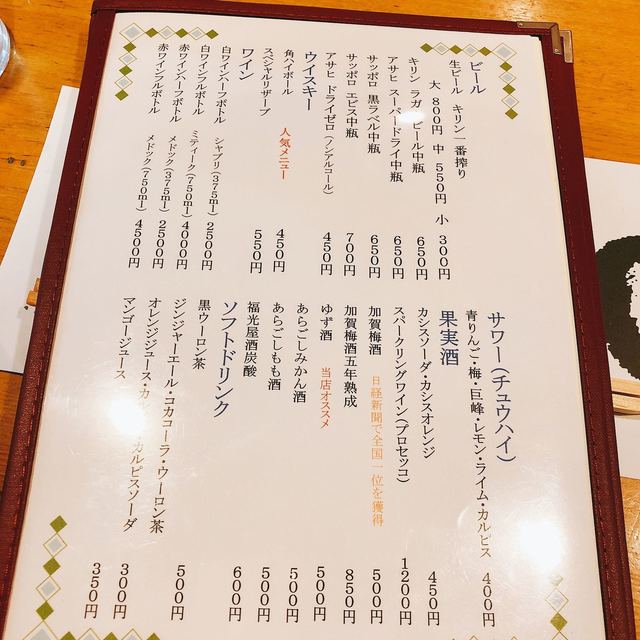 ビール
生ビール キリン一番搾り
大 800円 中 550円 小 300円
キリン ラガービール中瓶 650円
アサヒ スーパードライ中瓶 650円
サッポロ 黒ラベル中瓶 650円
サッポロ エビス中瓶 700円
アサヒ ドライゼロ(ノンアルコール) 450円
ウイスキー
角ハイボール 人気メニュー 450円
スペシャルリザーブ 550円
ワイン
白ワインハーフボトル シャブリ(375ml) 2500円
白ワインフルボトル ミティーク(750ml) 4000円
赤ワインハーフボトル メドック(375ml) 2500円
赤ワインフルボトル メドック(750ml) 4500円
サワー(チュウハイ)
青りんご・梅・巨峰・レモン・ライム・カルピス 400円
果実酒
カシスソーダ・カシスオレンジ 450円
スパークリングワイン(プロセッコ) 1200円
加賀梅酒 日経新聞で全国一位を獲得 500円
加賀梅酒五年熟成 850円
ゆず酒 当店オススメ 500円
あらごしみかん酒 500円
あらごしもも酒 500円
福光屋酒炭酸 600円
ソフトドリンク
黒ウーロン茶 500円
ジンジャーエール・コカコーラ・ウーロン茶
オレンジジュース・カル カルピスソーダ 300円
マンゴージュース 350円